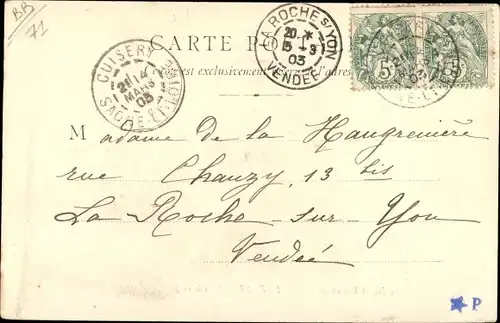 BB
71
CARTE P
est exclusivement
CUISERY
21 MARS 03
SAÔNE-ET-LOIRE
LA ROCHE S/YON
20 *
15 -3
03
VENDÉE
5
Madame de la Haugrenière
rue Chanzy, 13 bis
La Roche-sur-Yon
Vendée
P